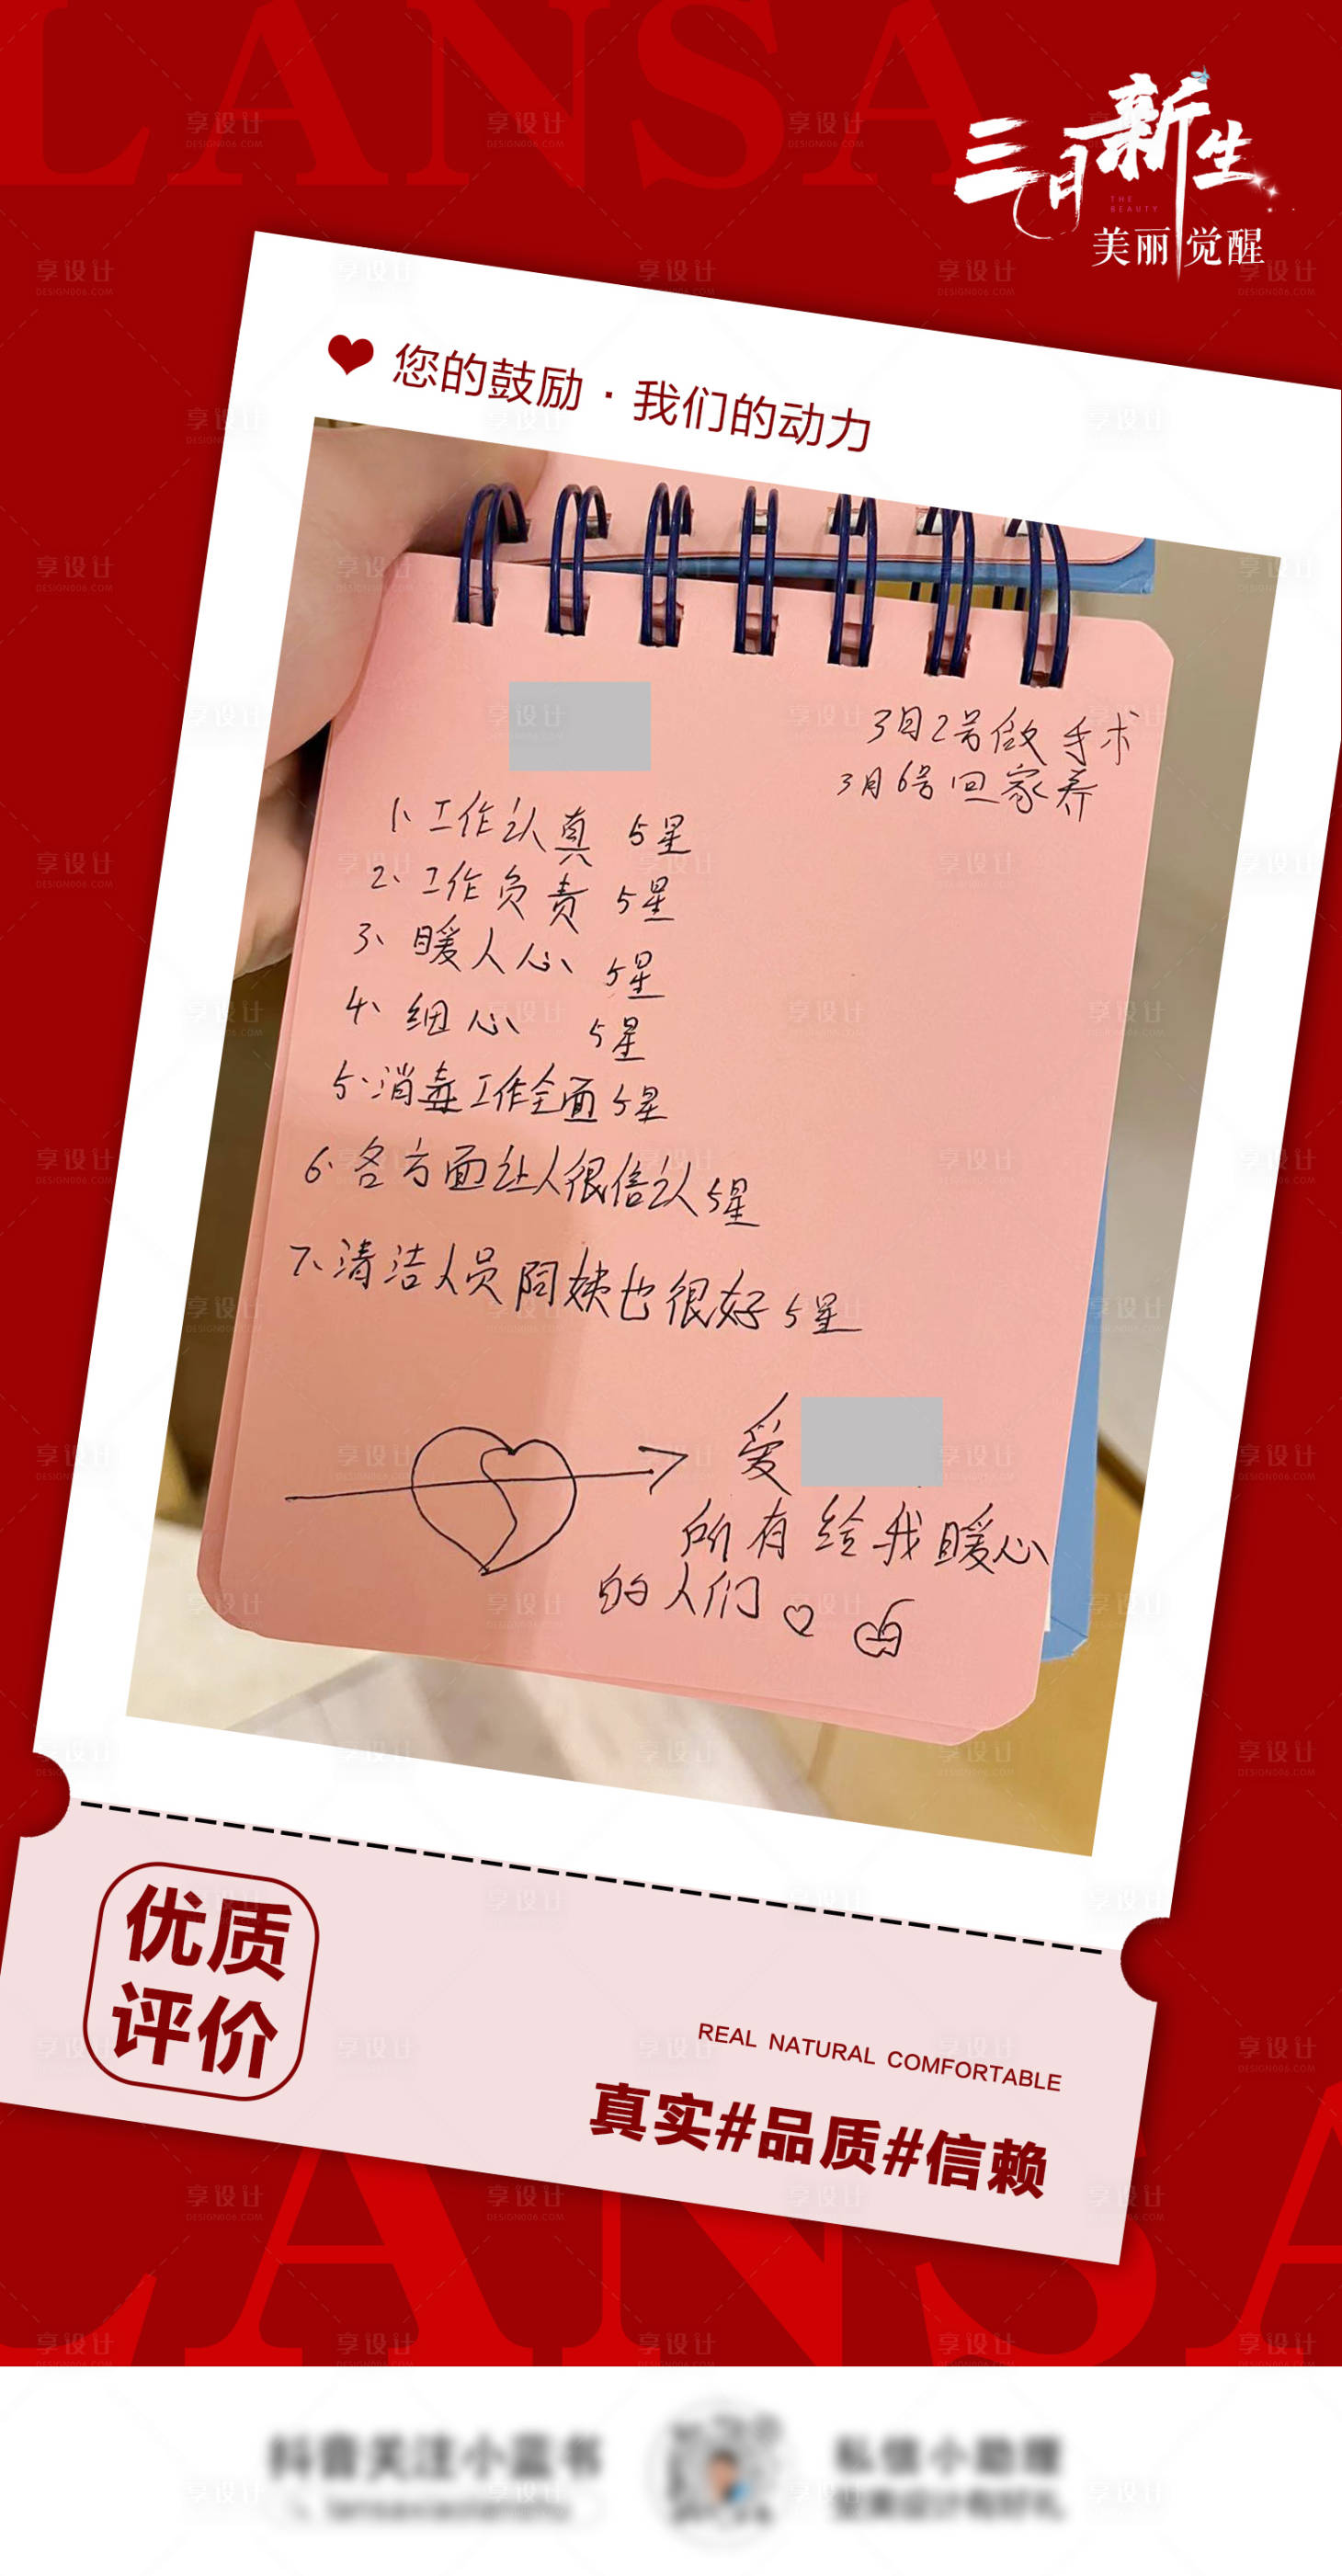 LANSA
三月新生
THE
BEAUTY
美丽觉醒
您的鼓励·我们的动力
3月2号做手术
3月6号回家养
1、工作认真 5星
2、工作负责 5星
3、暖人心 5星
4、细心 5星
5、消毒工作全面 5星
6、各方面让人很信认 5星
7、清洁人员阿姨也很好 5星
爱
所有给我暖心
的人们
优质
评价
REAL NATURAL COMFORTABLE
真实#品质#信赖
LANSA
享设计
DESIGN006.COM